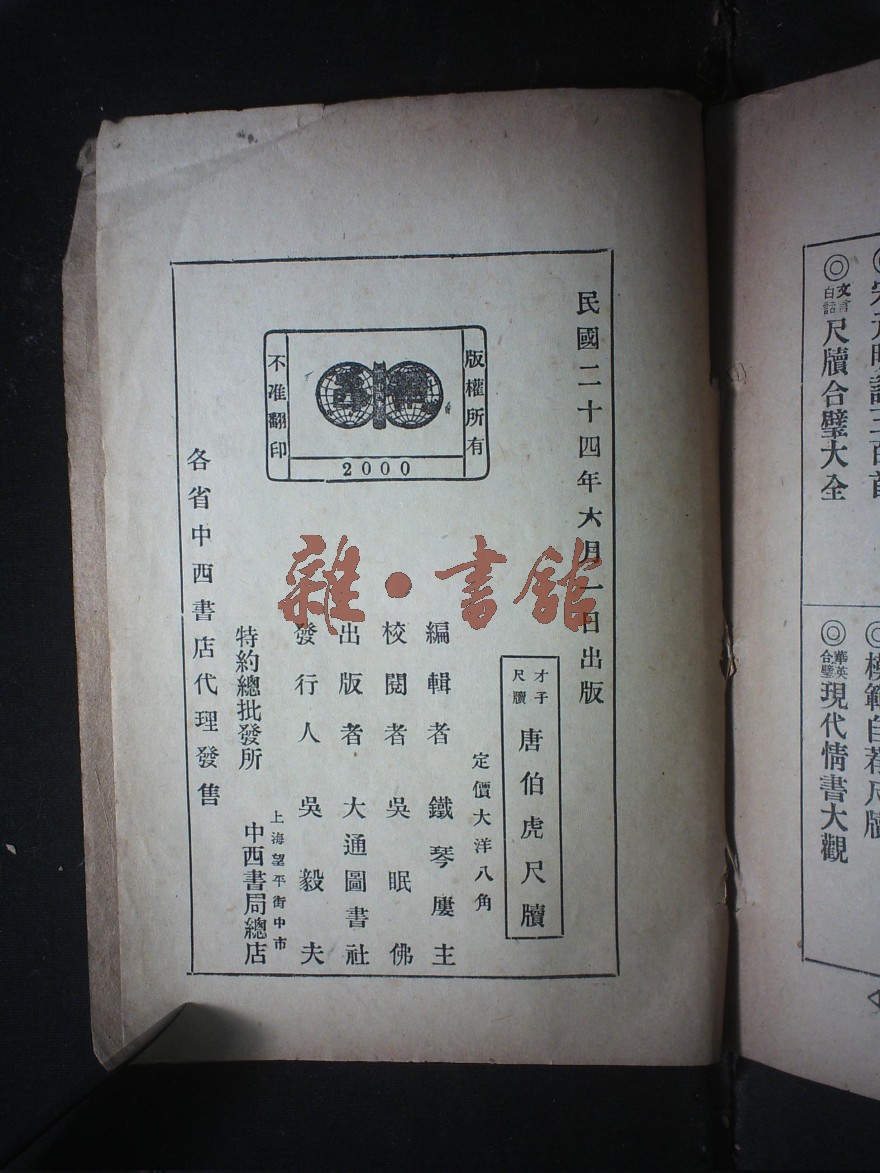 ◎文言白話尺牘合璧大全
◎模範自荐尺牘
◎華英合璧現代情書大觀
民國二十四年六月一日出版
才子尺牘
唐伯虎尺牘
定價大洋八角
編輯者 鐵琴屢主
校閱者 吳眠佛
出版者 大通圖書社
發行人 吳毅夫
特約總批發所 上海望平街中市 中西書局總店
各省中西書店代理發售
版權所有
不准翻印
2000
雜·書館